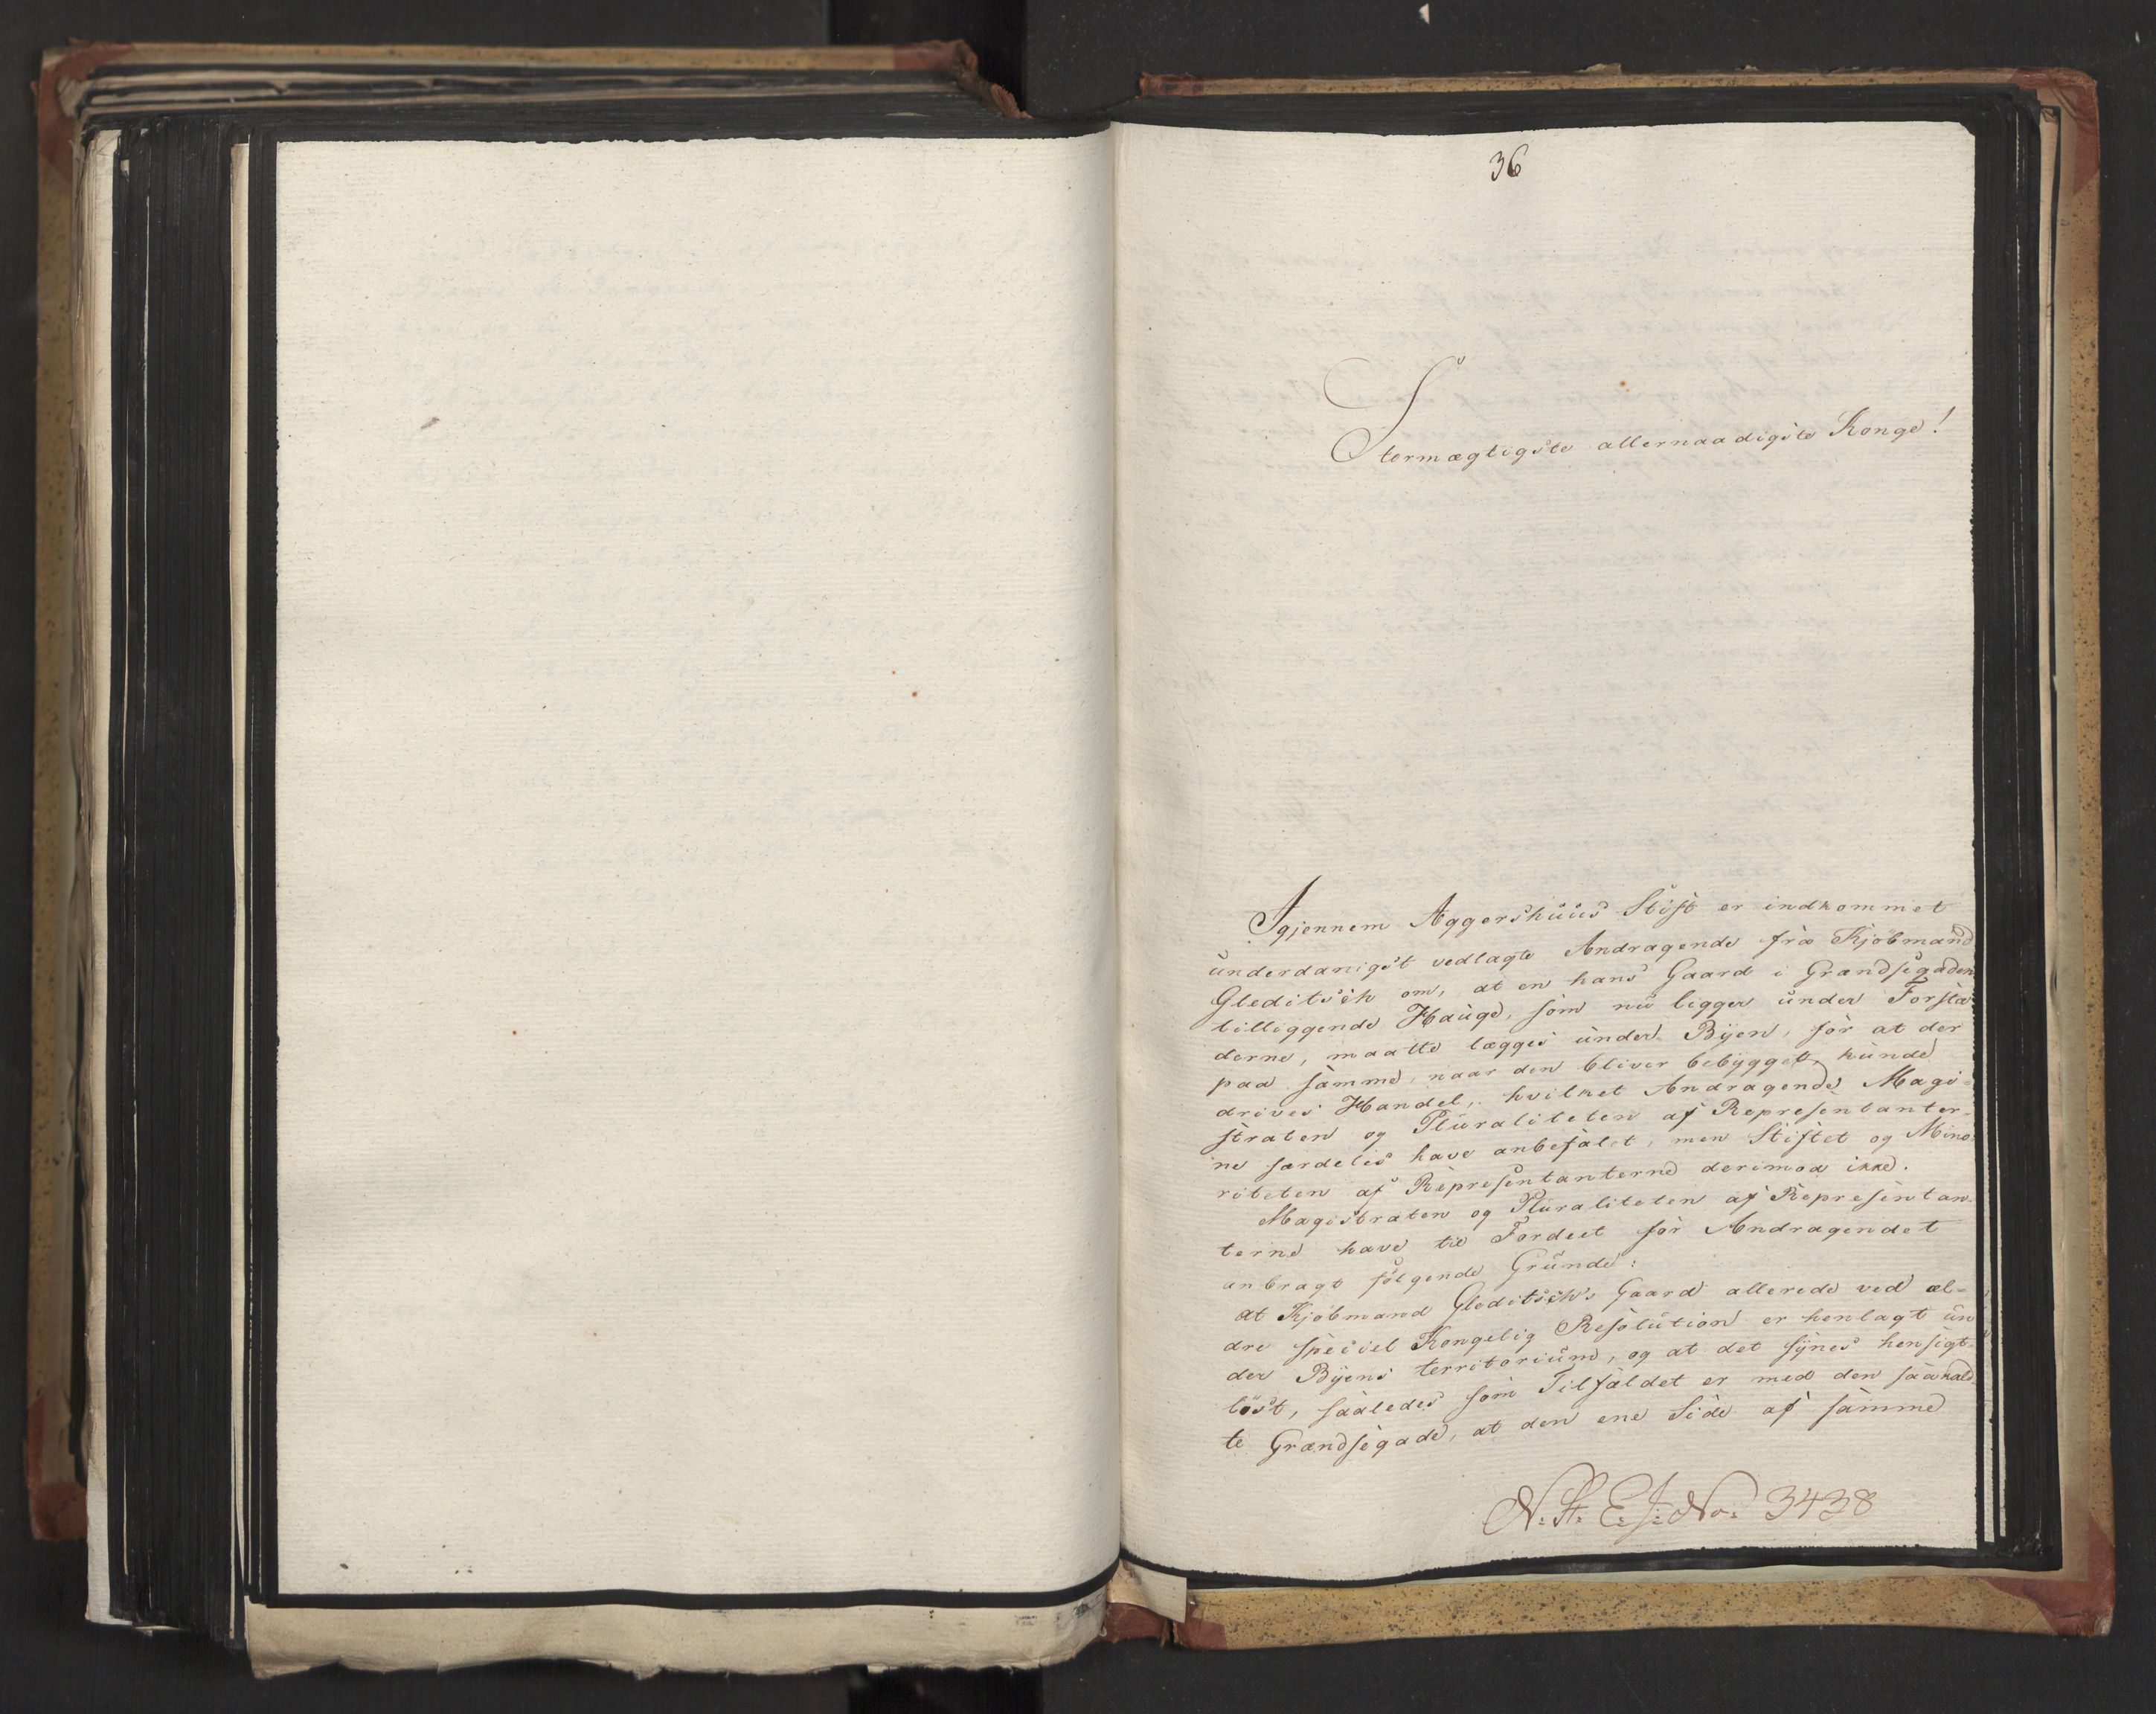 36
Stormægtigste allernaadigste Konge!
Igjennem Aggershuus Stift er indkommet
underdanigst vedlagte Andragende fra Kjøbmand
Gleditsch om, at en hans Gaard i Grændsegaden
tilliggende Hauge, som nu ligger under Forstæ-
derne, maatte lægges under Byen, for at der
paa samme, naar den bliver bebygget, kunde
drives Handel, hvilket Andragende Magi-
straten og Pluraliteten af Repræsentanter-
ne særdeles have anbefalet, men Stiftet og Mino-
riteten af Repræsentanterne derimod ikke.
Magistraten og Pluraliteten af Repræsentan-
terne have til Fordeel for Andragendet
anbragt følgende Grunde:
at Kjøbmand Gleditsch's Gaard allerede ved æl-
dre speciel Kongelig Resolution er henlagt un
der Byens territorium, og at det synes hensigt-
løst, saaledes som Tilfældet er med den saakald-
te Grændsegade, at den ene Side af samme
N: St: E: J: No: 3438